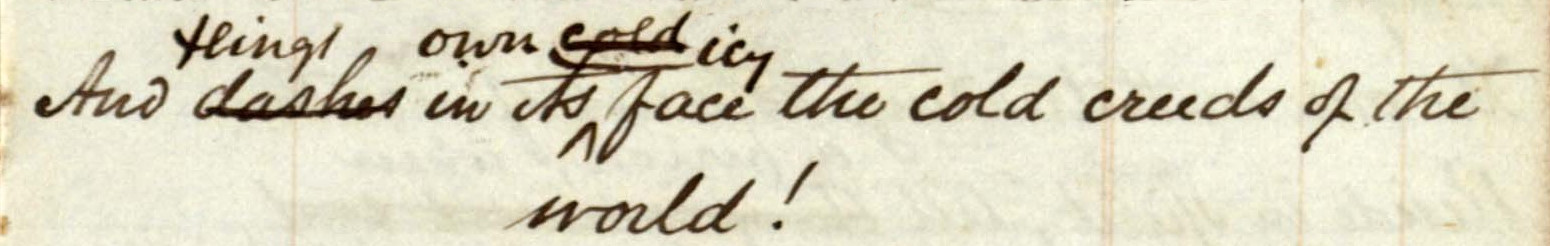 flings own cold icy
And dashes in its face the cold creeds of the
world!